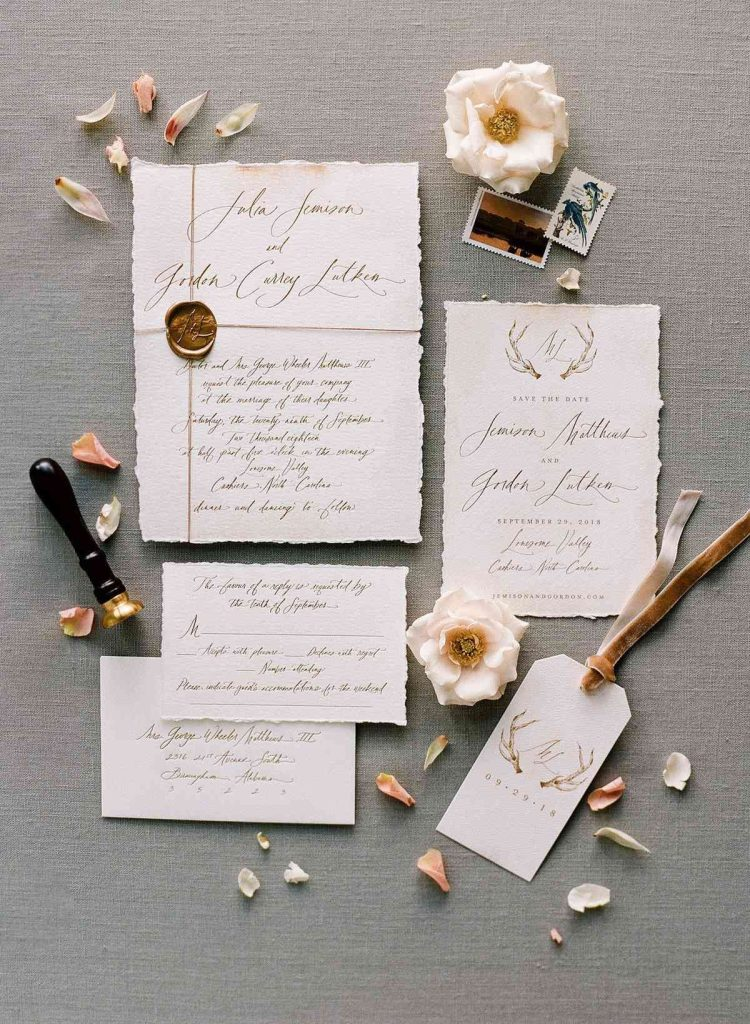 Julia Jemison
and
Gordon Currey Lutken
Doctor and Mrs. George Wheeler Matthews III
request the pleasure of your company
at the marriage of their daughter
Saturday, the twenty ninth of September
Two thousand eighteen
at half past five o'clock in the evening
Lonesome Valley
Cashiers, North Carolina
dinner and dancing to follow
SAVE THE DATE
Jemison Matthews
AND
Gordon Lutken
SEPTEMBER 29, 2018
Lonesome Valley
Cashiers, North Carolina
JEMISONANDGORDON.COM
The favour of a reply is requested by
the tenth of September
M
Accepts with pleasure Declines with regret
Number attending
Please indicate guests accommodations for the weekend
Mrs. George Wheeler Matthews III
2316 21st Avenue South
Birmingham, Alabama
3 5 2 2 3
09•29•18